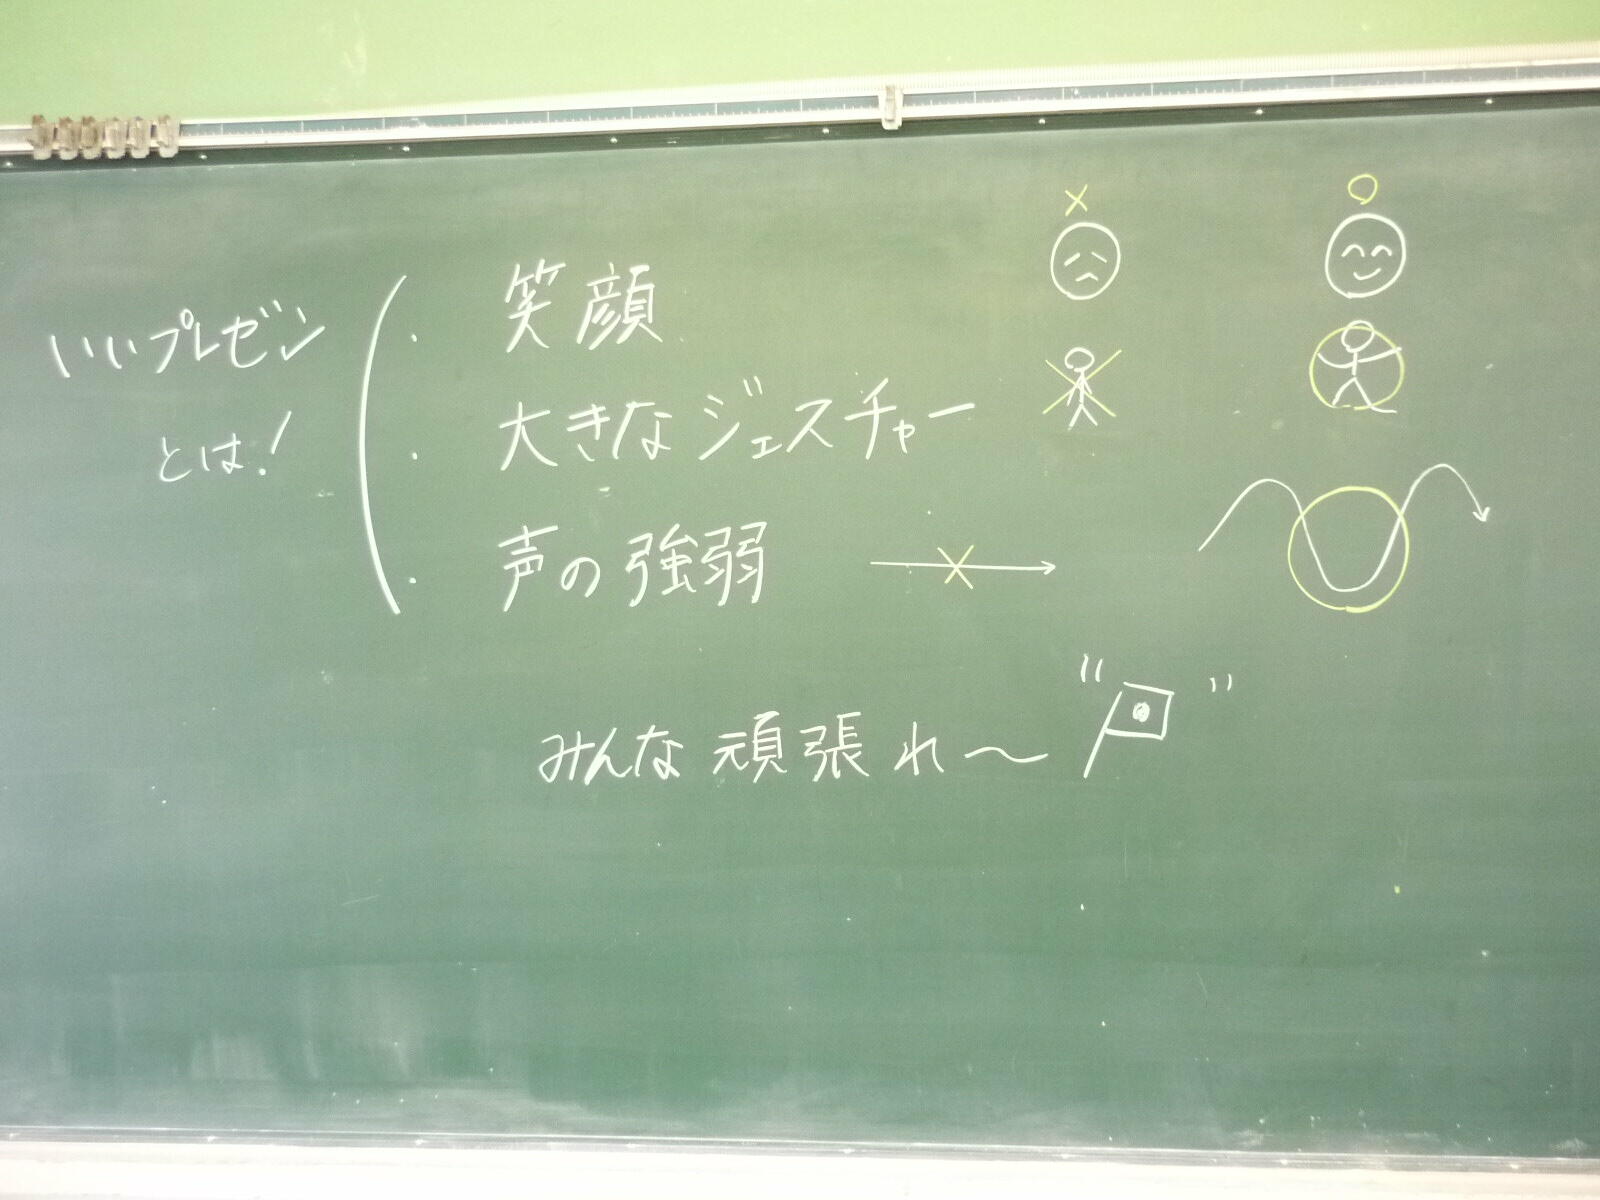 いいプレゼン
とは!
・笑顔
・大きなジェスチャー
・声の強弱
みんな頑張れ〜